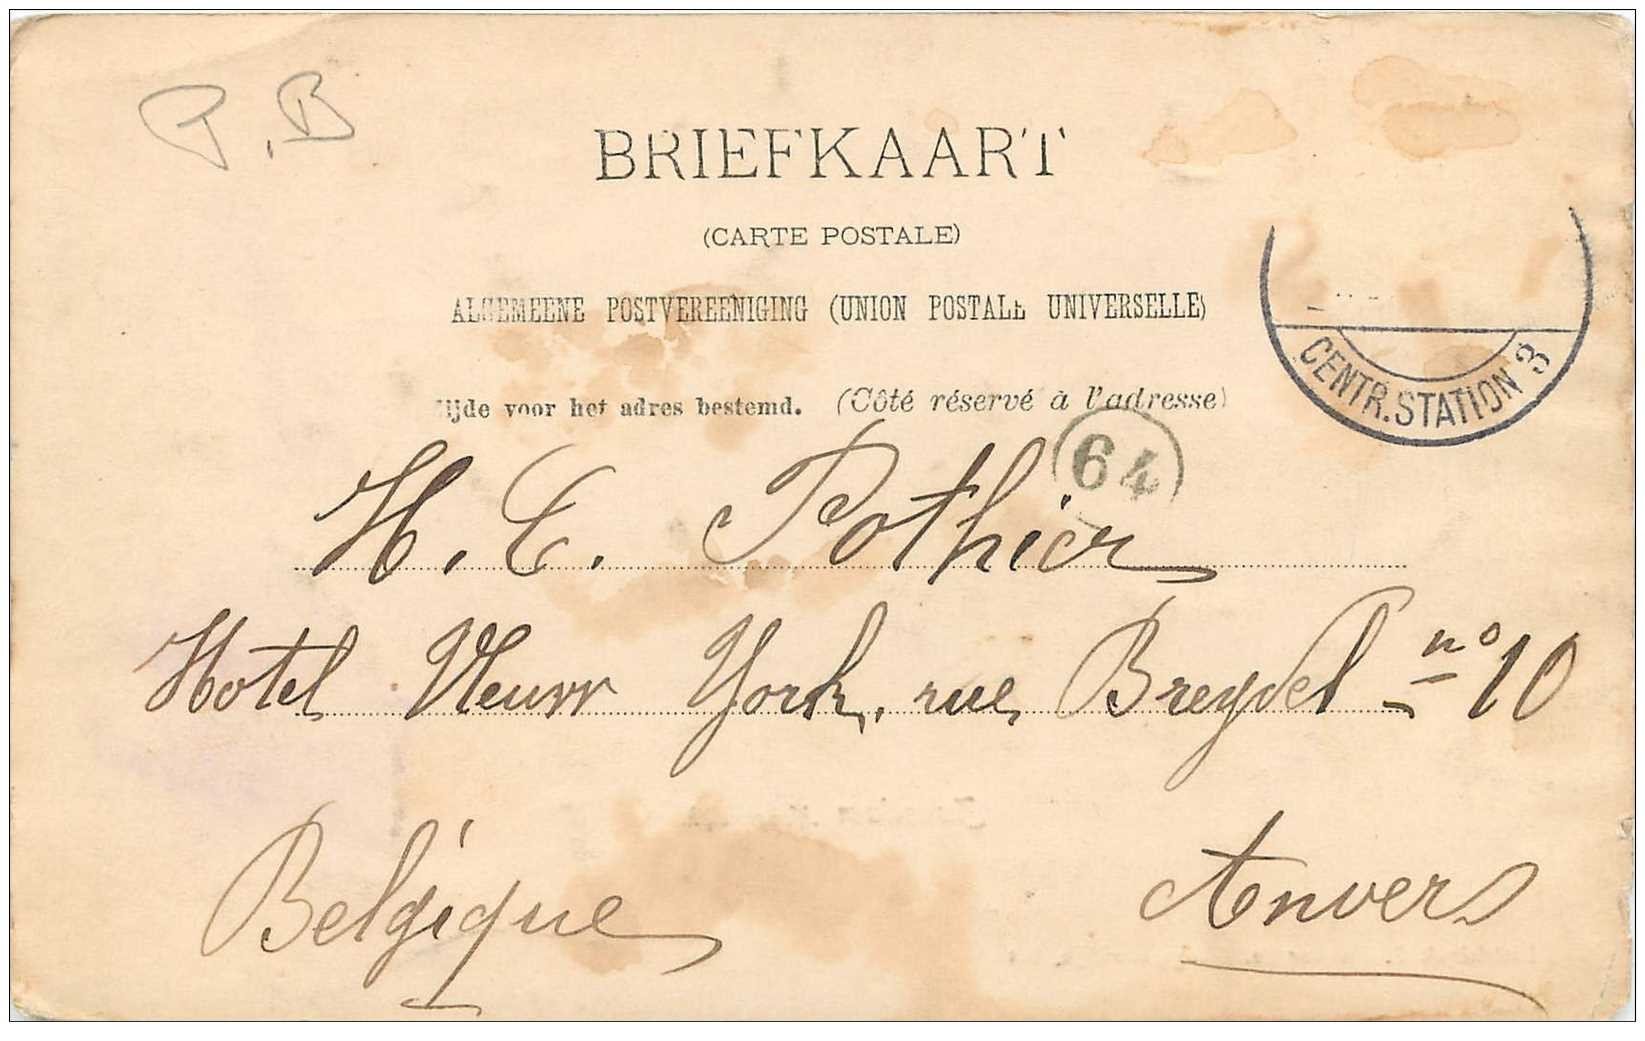 P.B
BRIEFKAART
(CARTE POSTALE)
ALGEMEENE POSTVEREENIGING (UNION POSTALE UNIVERSELLE)
Zijde voor het adres bestemd. (Côté réservé à l'adresse)
CENTR. STATION 3
64
H. C. Pothier
Hotel Neuw York, rue Breydel nº 10
Belgique Anvers